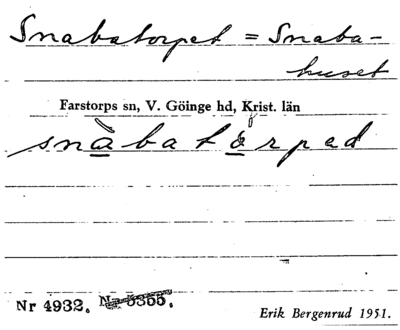 Snabatorpet = Snaba-
huset
Farstorps sn, V. Göinge hd, Krist. län
snàbatårpad
Nr 4932. Nr 5355.
Erik Bergenrud 1951.